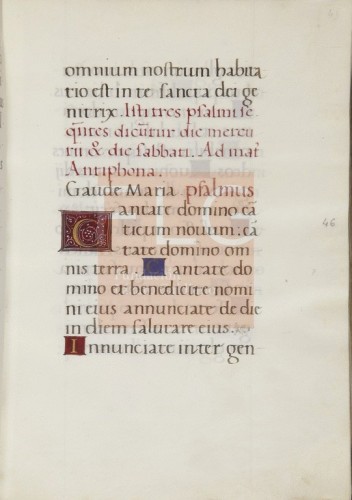 omnium nostrum habita
tio est in te sancta dei ge
nitrix. Isti tres psalmi se
q̄ntes dicūtur die mercu
rii & die sabbati. Ad mat̄
Antiphona.
Gaude Maria psalmus
Cantate domino cā
ticum novum. cā
tate domino om
nis terra. Cantate do
mino et benedicite nomi
ni eius annunciate de die
in diem salutare eius.
Annunciate inter gen
46